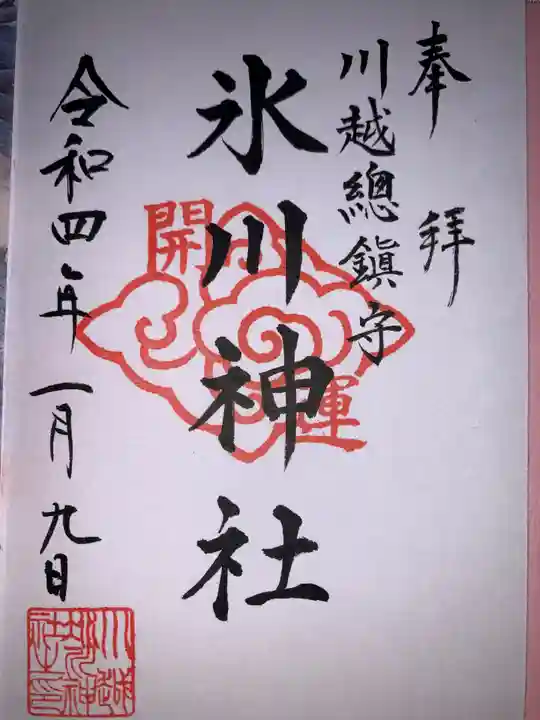 奉拝
川越總鎮守
氷川神社
開運
令和四年一月九日
川越氷川神社印